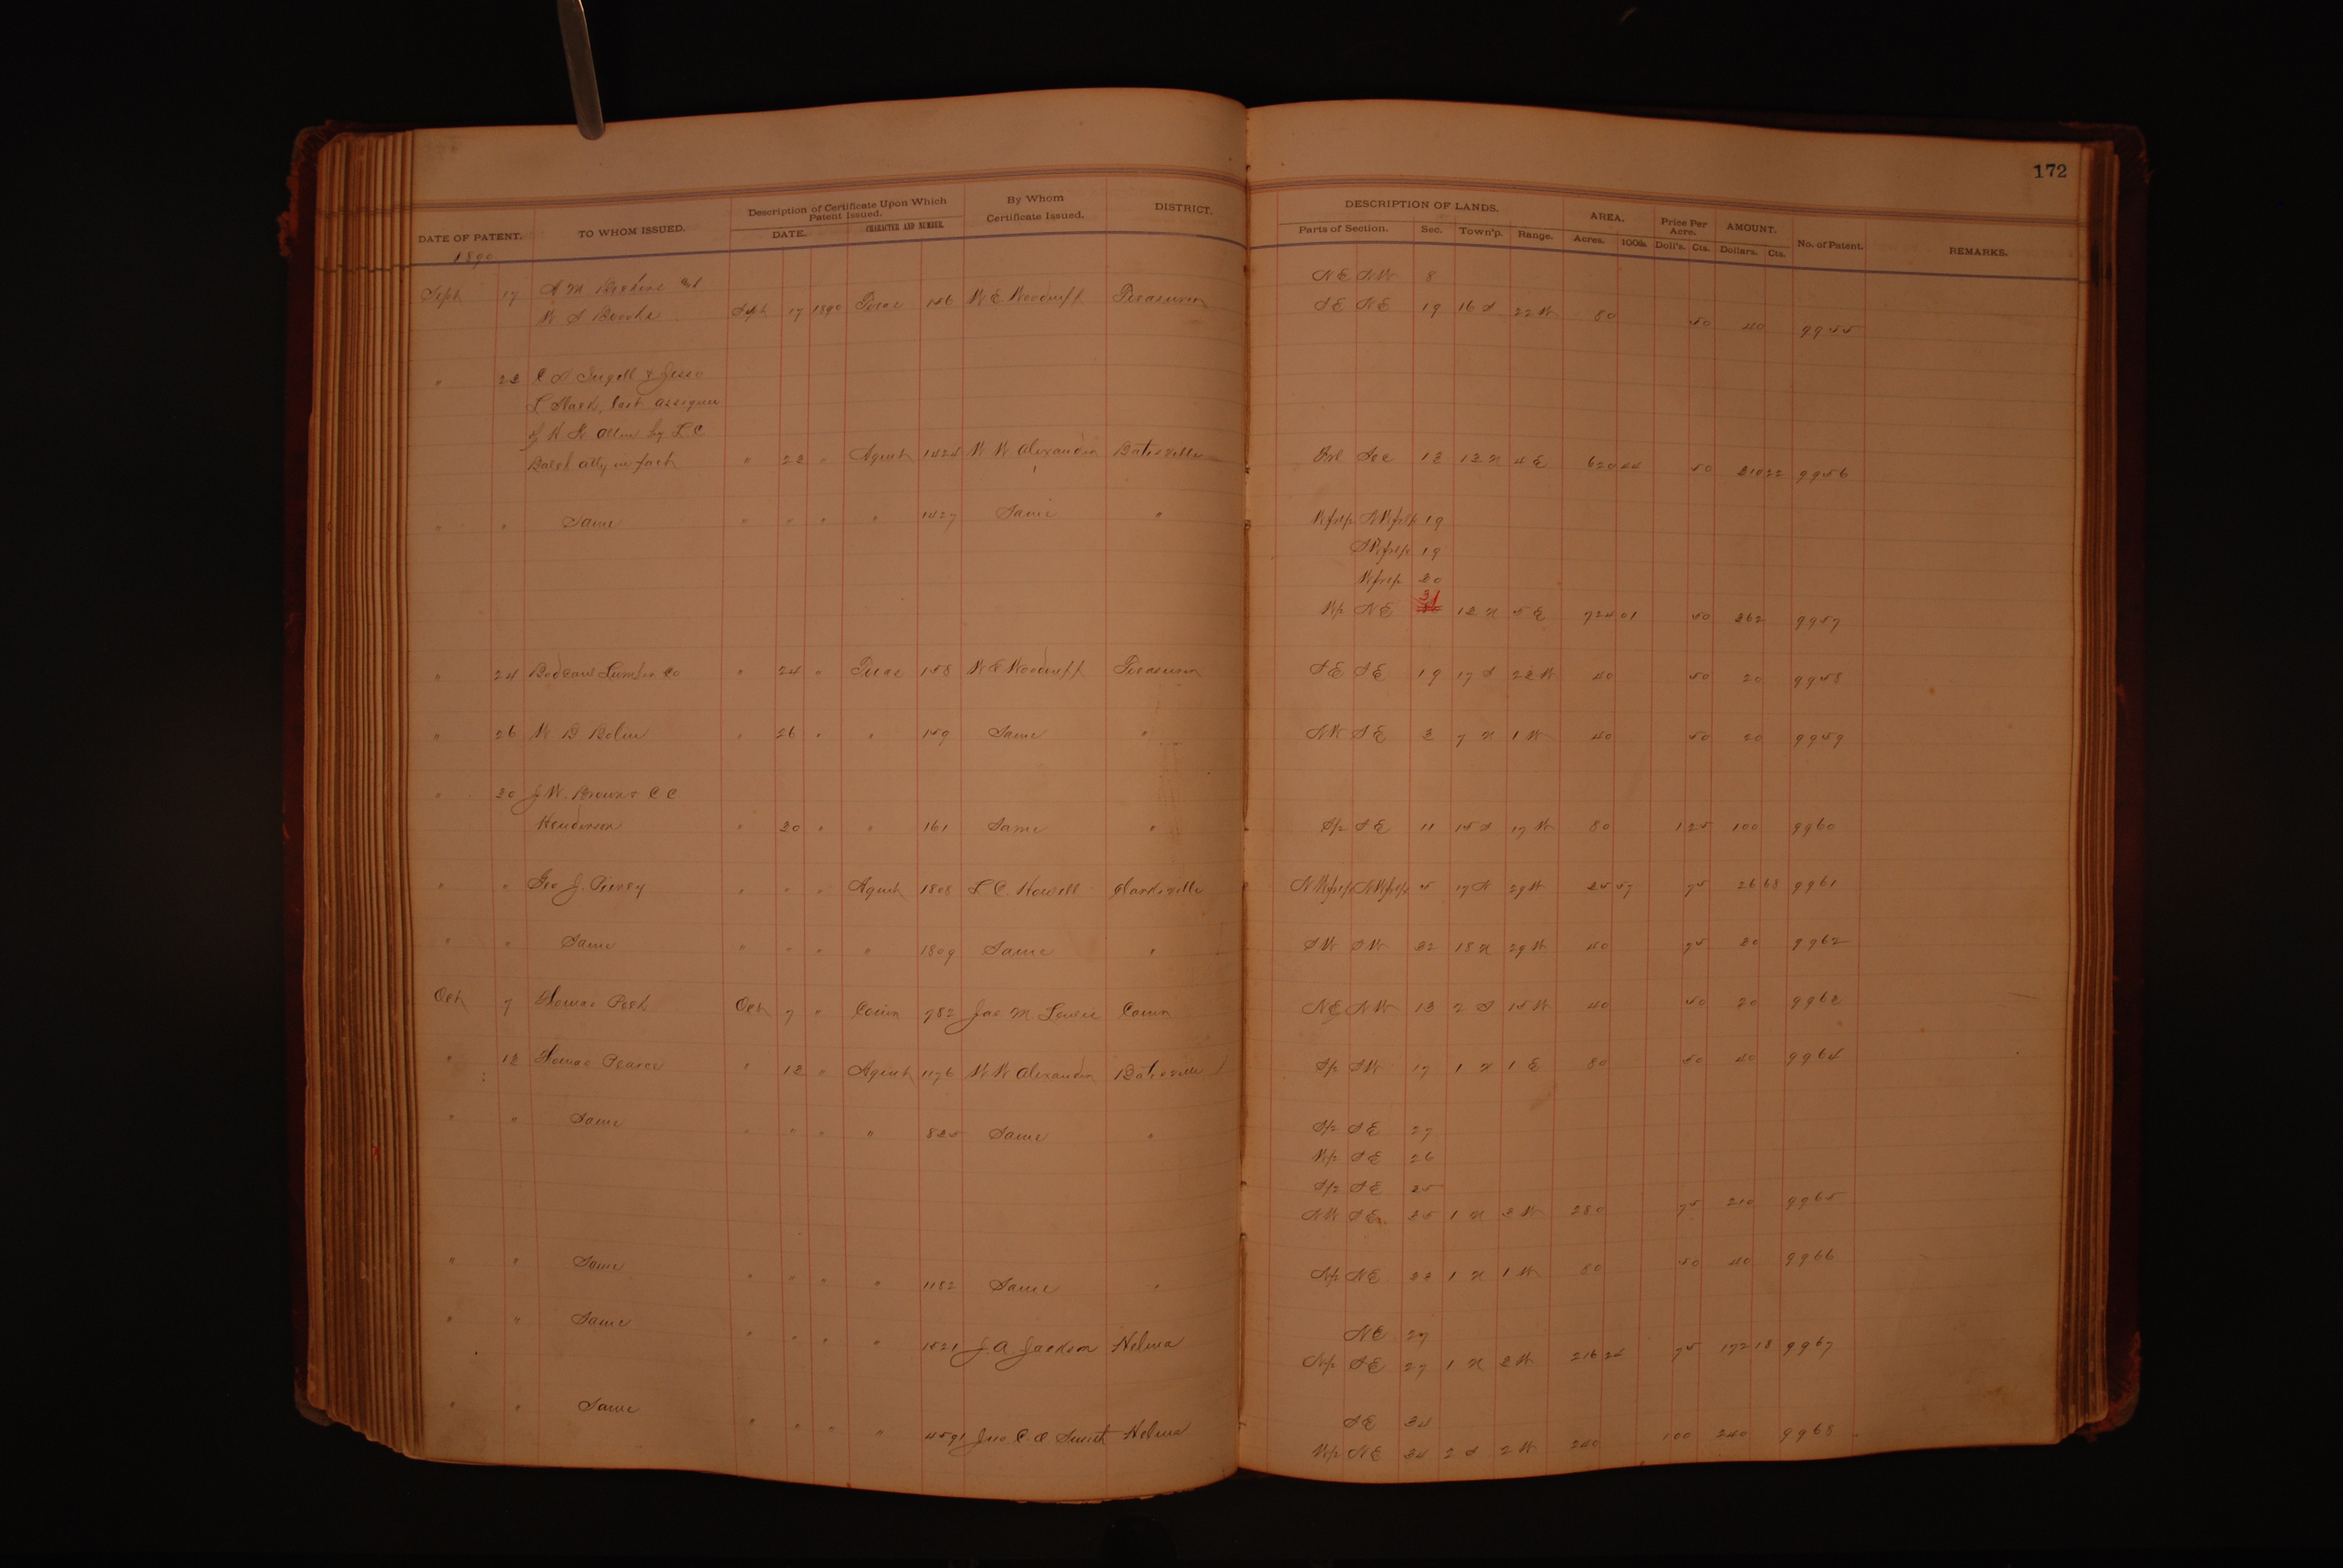 172
DATE OF PATENT. TO WHOM ISSUED. Description of Certificate Upon Which Patent Issued. DATE. CHARACTER AND NUMBER. By Whom Certificate Issued. DISTRICT. DESCRIPTION OF LANDS. Parts of Section. Sec. Town'p. Range. AREA. Acres. 100ths. Price Per Acre. Doll's. Cts. AMOUNT. Dollars. Cts. No. of Patent. REMARKS.
1890
Sept 17 NE NW 8
W S Sept 17 1890 Treas 156 W E Woodruff Treasurer SE NE 19 16 S 22 W 80 50 40 9955
" 23 & Jesse
L Clark, last assignee
of by L. C.
atty in fact " 23 " Agent 1424 W W Alexander Batesville Frl Sec 13 12 N 4 E 620 44 50 310 22 9956
" " Same " " " " 1427 Same " Wfrl½ NWfrl¼ 19
SWfrl¼ 19
Wfrl½ 30
W½ NE 31 12 N 5 E 724 01 50 362 9957
" 24 Bodcaw Lumber Co " 24 " Treas 158 W E Woodruff Treasurer SE SE 19 17 S 22 W 40 50 20 9958
" 26 W D Bolen " 26 " " 159 Same " NW SE 3 7 N 1 W 40 50 20 9959
" 30 J W. Brown & C C
Henderson " 30 " " 161 Same " S½ SE 11 15 S 17 W 80 1 25 100 9960
" " Geo J. " " " Agent 1808 L C. Howell Clarksville NWfrl¼ NWfrl¼ 5 17 N 29 W 35 57 75 26 68 9961
" " Same " " " " 1809 Same " SW SW 32 18 N 29 W 40 75 30 9962
Oct 7 Thomas Oct 7 " Comr 782 Jas M Lewis Comr NE NW 13 2 S 15 W 40 50 20 9963
" 13 Thomas Pearce " 13 " Agent 1176 W W Alexander Batesville S½ SW 17 1 N 1 E 80 50 40 9964
" " Same " " " " 825 Same " S½ SE 27
W½ SE 26
S½ SE 35
NW SE 35 1 N 3 W 280 75 210 9965
" " Same " " " " 1182 Same " N½ NE 33 1 N 1 W 80 50 40 9966
" " Same " " " " 1521 J. A. Jackson Helena NE 27
N½ SE 27 1 N 3 W 216 24 75 172 18 9967
" " Same " " " " 4591 Jno C. O Smith Helena SE 34
W½ NE 34 2 S 2 W 240 1 00 240 9968